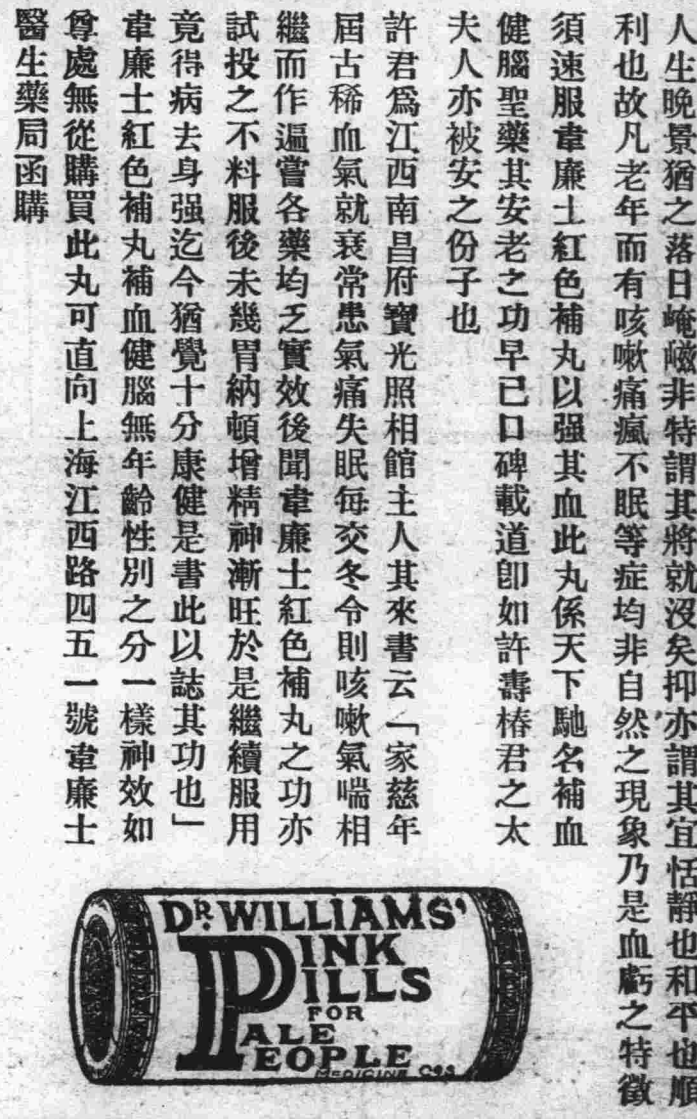 人生晚景猶之落日崦嵫非特謂其將就沒矣抑亦謂其宜恬靜也和平也順
利也故凡老年而有咳嗽痛瘋不眠等症均非自然之現象乃是血虧之特徵
須速服韋廉士紅色補丸以强其血此丸係天下馳名補血
健腦聖藥其安老之功早已口碑載道卽如許壽椿君之太
夫人亦被安之份子也
許君爲江西南昌府寶光照相館主人其來書云「家慈年
屆古稀血氣就衰常患氣痛失眠每交冬令則咳嗽氣喘相
繼而作遍嘗各藥均乏實效後聞韋廉士紅色補丸之功亦
試投之不料服後未幾胃納頓增精神漸旺於是繼續服用
竟得病去身强迄今猶覺十分康健是書此以誌其功也」
韋廉士紅色補丸補血健腦無年齡性別之分一樣神效如
尊處無從購買此丸可直向上海江西路四五一號韋廉士
醫生藥局函購
DR. WILLIAMS'
PINK
PILLS
FOR
PALE
PEOPLE
MEDICINE Co.